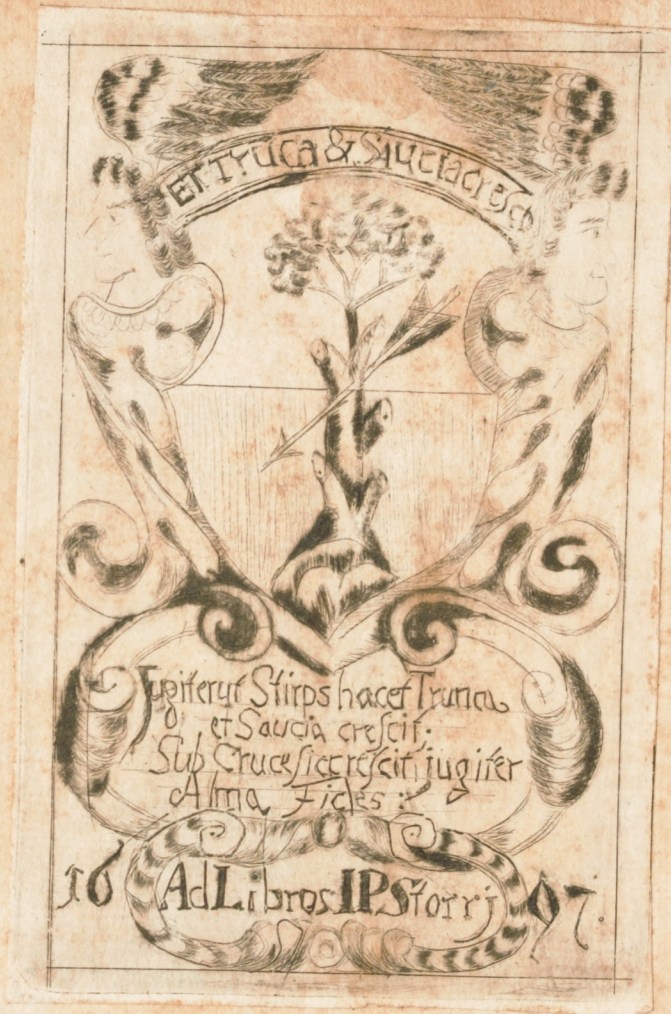 Et Truca & Siucia cresco
Jugiter ut Stirps hacet Trunca
et Saucia crescit.
Sub Cruce sic crescit jugifer
Alma Fides:
16 Ad Libros IPStorrj 97.